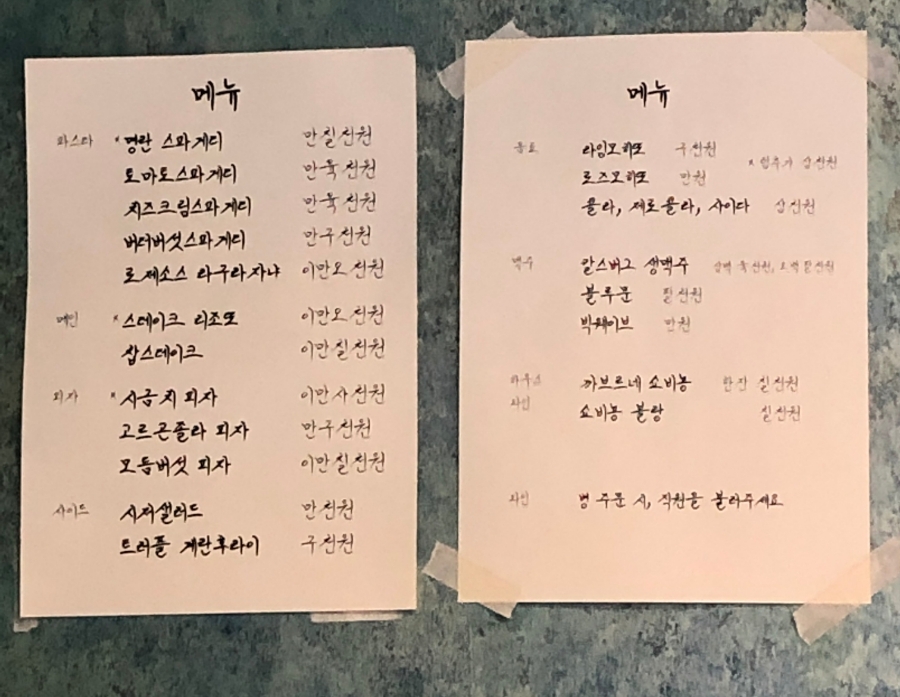 메뉴
파스타 *명란 스파게티 만칠천원
토마토스파게티 만육천원
치즈크림스파게티 만육천원
버터버섯스파게티 만구천원
로제소스 라구라자냐 이만오천원
메인 *스테이크 리조또 이만오천원
찹스테이크 이만칠천원
피자 *시금치 피자 이만사천원
고르곤졸라 피자 만구천원
모듬버섯 피자 이만칠천원
사이드 시저샐러드 만천원
트러플 계란후라이 구천원
메뉴
음료 라임모히또 구천원
*럼추가 삼천원
로즈모히또 만원
콜라, 제로콜라, 사이다 삼천원
맥주 칼스버그 생맥주
블루문 칠천원
빅웨이브 만원
하우스 까브르네 쇼비뇽 한잔 칠천원
와인 쇼비뇽 블랑 칠천원
와인 병 주문 시, 직원을 불러주세요